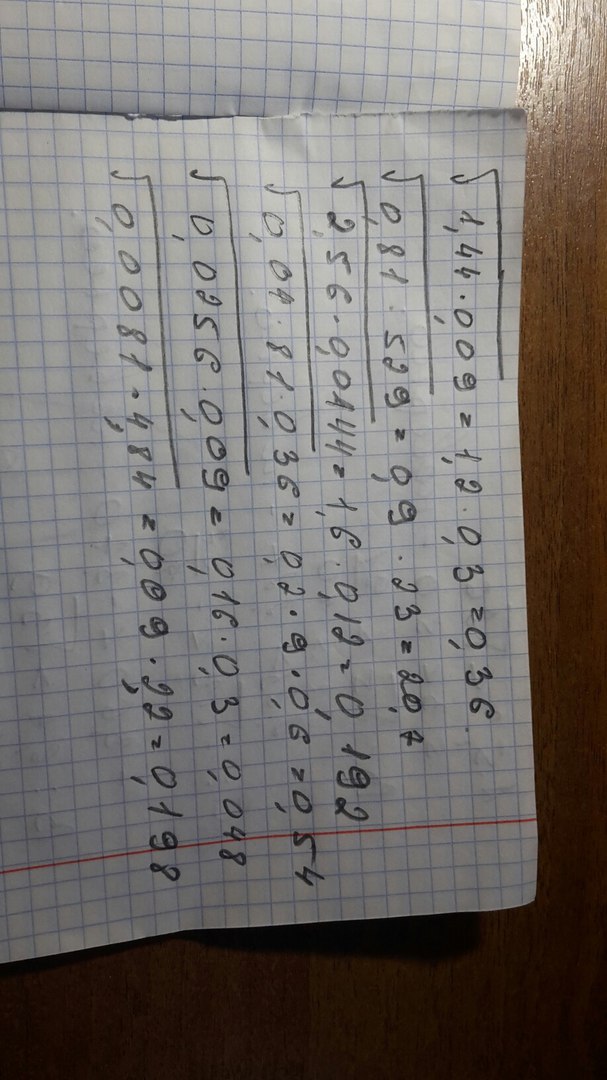 √1,44·0,09 = 1,2·0,3 = 0,36
√0,81·529 = 0,9·23 = 20,7
√2,56·0,0144 = 1,6·0,12 = 0,192
√0,04·81·0,36 = 0,2·9·0,6 = 0,54
√0,0256·0,09 = 0,16·0,3 = 0,048
√0,0081·4,84 = 0,09·2,2 = 0,198